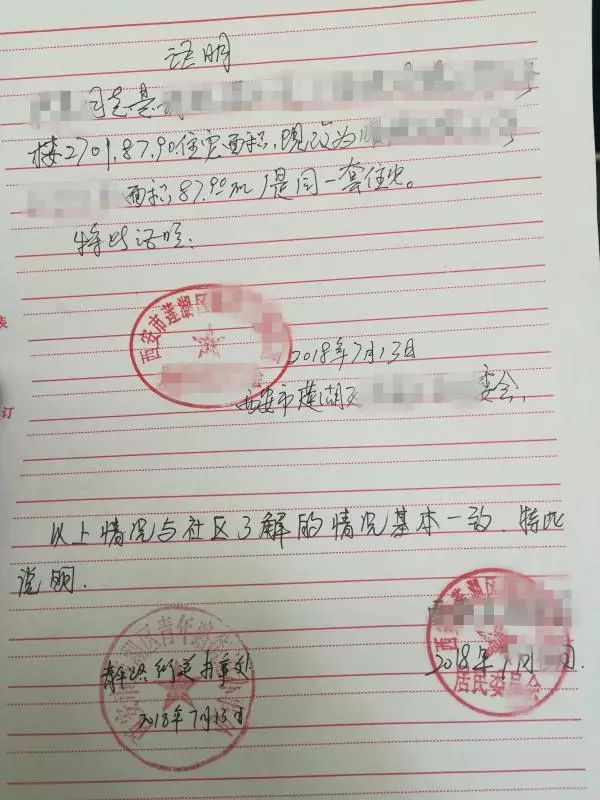 证明
楼2701.87.90住宅面积,现改为
面积87.90㎡是同一套住宅。
特此证明.
西安市莲湖区
2018年7月13日
西安市莲湖区 委会.
以上情况与社区了解的情况基本一致.特此
说明.
湖区青年路
青年路街道办事处
2018年7月13日
莲湖区
2018年7月 日.
居民委员会
装
订